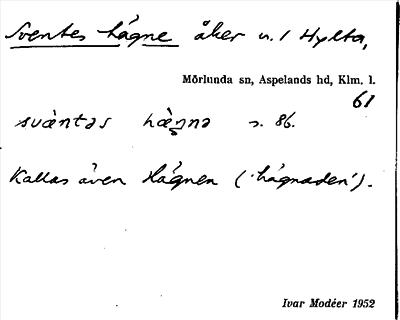 Sventes hägne åker n. 1 Hylta,
Mörlunda sn, Aspelands hd, Klm. l.
61
svæ̀ntəs hæ̀ŋnə s. 86.
Kallas även Hägnen ('hägnaden').
Ivar Modéer 1952